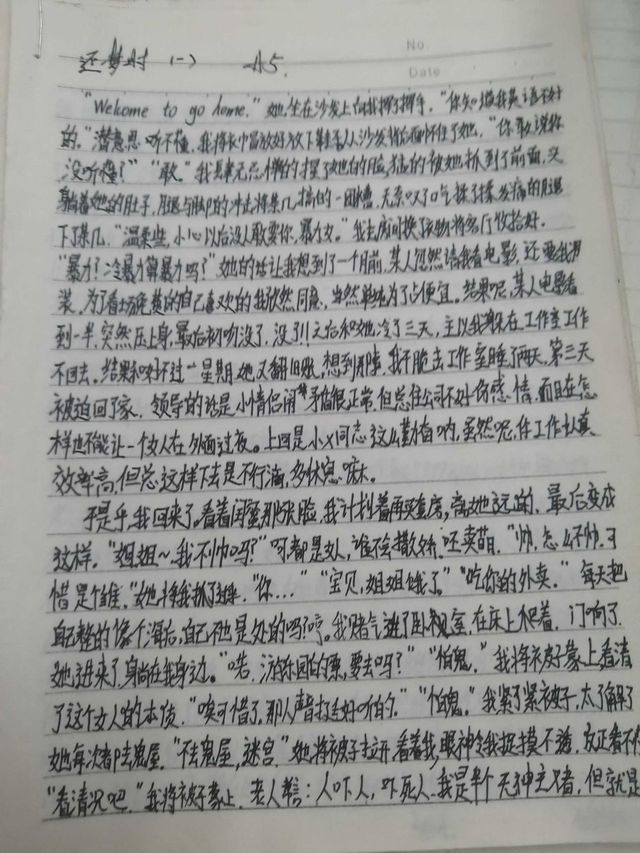 还梦时 (一) A5.
No.
Date
"Welcome to go home." 她坐在沙发上向我挥了挥手。"你知道我英语不好
的。"潜意思听不懂。我将外套放好放下鞋,从沙发后面怀住了她。"你敢说你
没听懂?" "敢。"我肆无忌惮的捏了她的脸,猛的被她抓到了前面,
着她的肚子,腿与脚的冲击将茶几搞的一团糟,无奈叹了口气揉了揉发痛的腿
下了茶几。"温柔些,小心以后没人敢要你,暴力女。"我去房间换了衣物将客厅收拾好。
"暴力?冷暴力算暴力吗?"她的话让我想到了一个月前,某人忽然请我看电影,还要我
装,为了看场免费的自己喜欢的我欣然同意,当然单纯为了占便宜。结果呢,某人电影看
到一半,突然压上身,最后初吻没了,没了!!之后和她冷了三天,主以我躲在工作室工作
不回去。结果和好不过一星期,她又翻旧账,想到那事,我干脆去工作室睡了两天,第三天
被迫回了家,领导的话是小情侣闹矛盾很正常,但总住公司不好伤感情,而且在怎
样也不能让一个女人在外面过夜。上回是小X同志这么勤奋呐,虽然呢,你工作认真
效率高,但总这样下去是不行滴,多休息嘛。
于是乎,我回来了,看着闺蜜那张脸,我计划着再买套房,离她远远的,最后变成
这样。"姐姐~我不帅吗?"呵都是女人,谁不会撒娇,呸卖萌。"帅,怎么不帅,可
惜是个雌。"她将我抓了过来。"你..." "宝贝,姐姐饿了。" "吃你的外卖。"每天把
自己整的像个海后,自己不也是处的吗?哼。我赌气进了卧室,在床上躺着,门响了,
她进来了,身躺在我身边。"喏,游乐园的票,要去吗?" "怕鬼。"我将被子蒙上看清
了这个女人的本质。"唉可惜了,那人声音挺好听的。" "怕鬼。"我紧了紧被子,太了解了
她每次都去鬼屋。"不去鬼屋,迷宫。"她将被子拉开,看着我,眼神令我捉摸不透,反正看不
"看情况吧。"我将被子蒙上,老人言:人吓人,吓死人。我是半个无神主义者,但就是